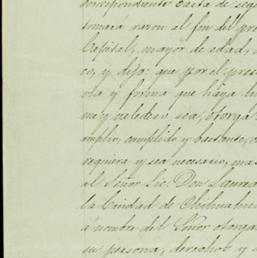 correspondiente carta de seg
tomará razon al fin del pro
Capital, mayor de edad, 
co, y dijo: que por el prese
via y forma que haya lu
mas valedero sea, otorga
amplio, cumplido y bastante,
requiera y sea necesario, mas
al Señor Lic. Don Laurea
la Ciudad de Chihuahua
á nombre del Señor otorga
su persona, derechos y